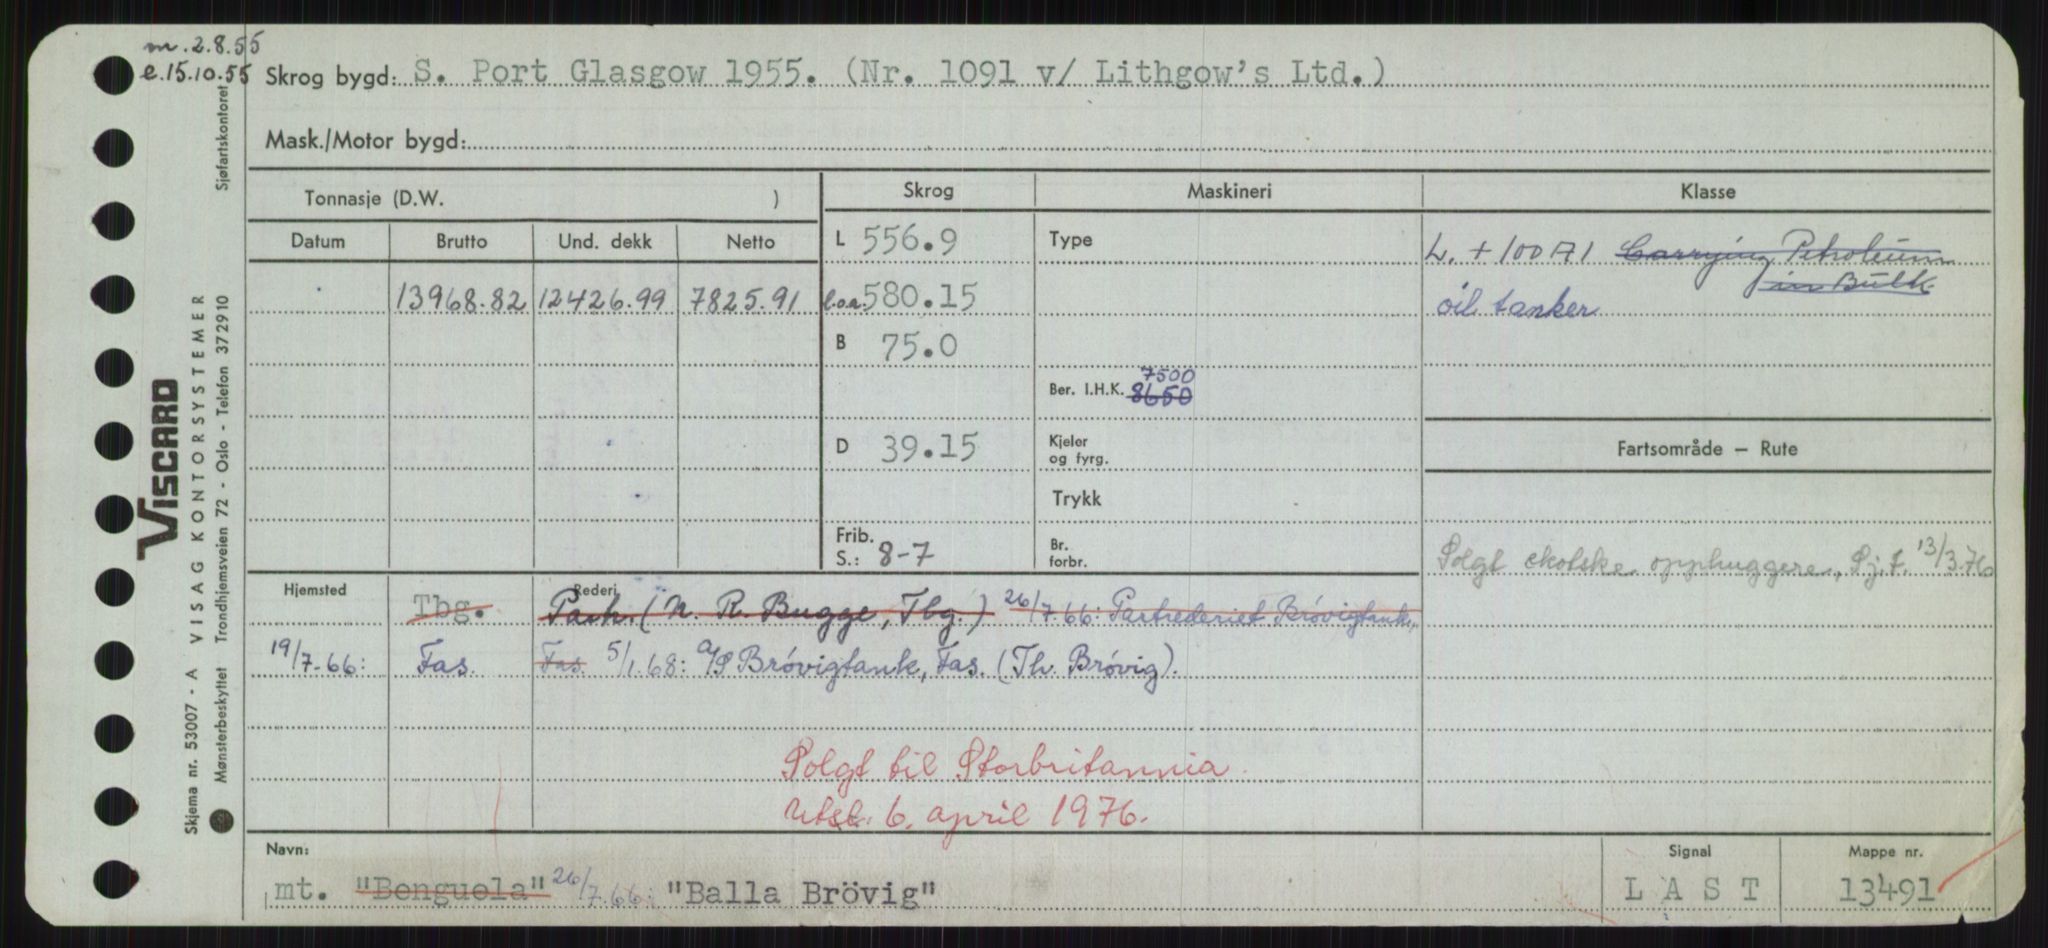 m. 2.8.55
e. 15.10.55 Skrog bygd: S. Port Glasgow 1955. (Nr. 1091 v/ Lithgow's Ltd.)
Mask./Motor bygd:
Tonnasje (D.W. ) Skrog Maskineri Klasse
Datum Brutto Und. dekk Netto L 556.9 Type L. + 100 A 1 Carrying Petroleum
in Bulk
13968.82 12426.99 7825.91 l.o.a. 580.15 oil tanker
B 75.0
7500
Ber. I.H.K. 8650
D 39.15 Kjeler
og fyrg. Fartsområde — Rute
Trykk
Frib.
S.: 8-7 Br.
forbr. Solgt skotske opphuggere, Sj.t. 13/3.76
Hjemsted Rederi
Tbg. Partr. (N. R. Bugge, Tbg.) 26/7.66: Partrederiet Brövigtank,
19/7.66: Fas. Fas. 5/1.68: A/S Brövigtank, Fas. (Th. Brövig).
Solgt til Storbritannia.
Utsl. 6. april 1976.
Navn: Signal Mappe nr.
mt. "Benguela" 26/7.66: "Balla Brövig" L A S T 13491
Sjøfartskontoret
VISCARD
Skjema nr. 53007 - A VISAG KONTORSYSTEMER
Mønsterbeskyttet Trondhjemsveien 72 - Oslo - Telefon 372910